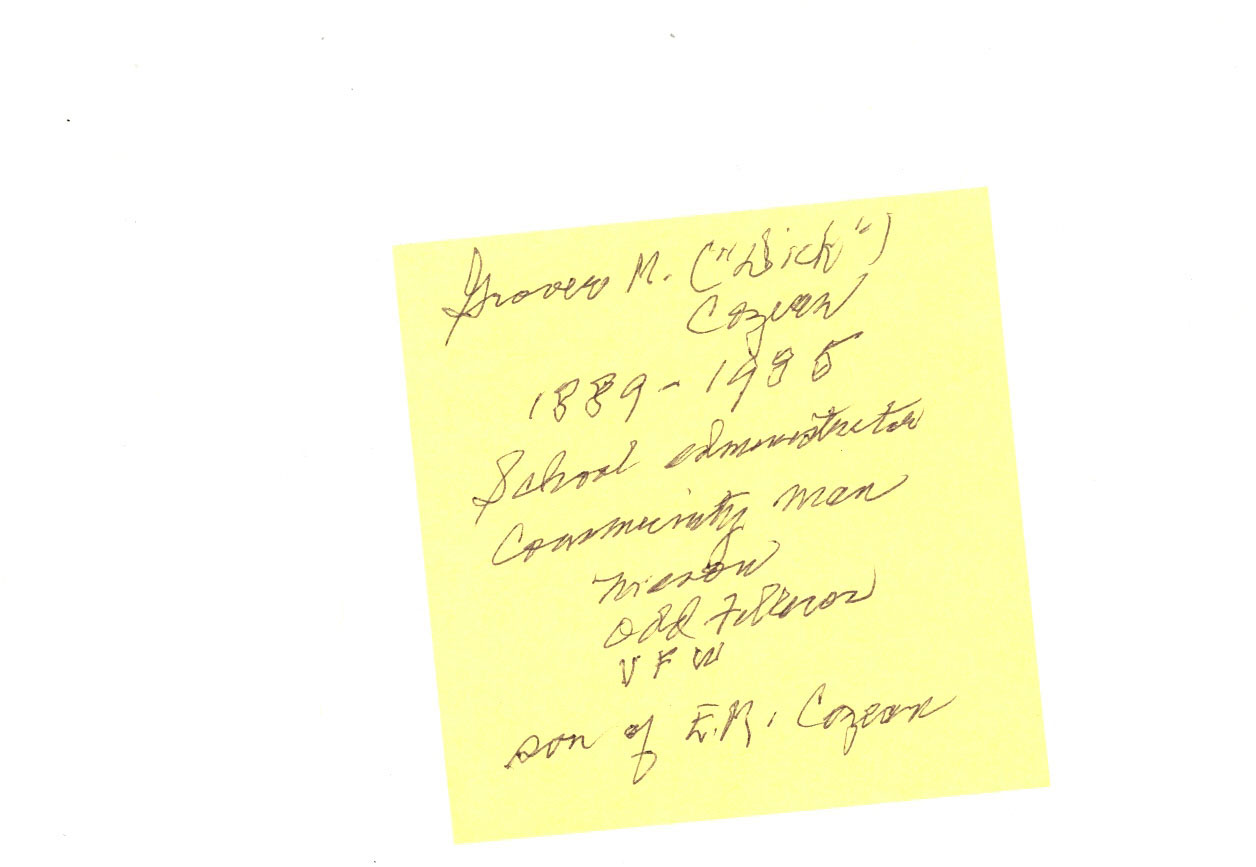 Grover M. ("Dick")
Cozean
1889-1985
School administrator
Community man
Mason
Odd Fellow
VFW
son of E.R. Cozean